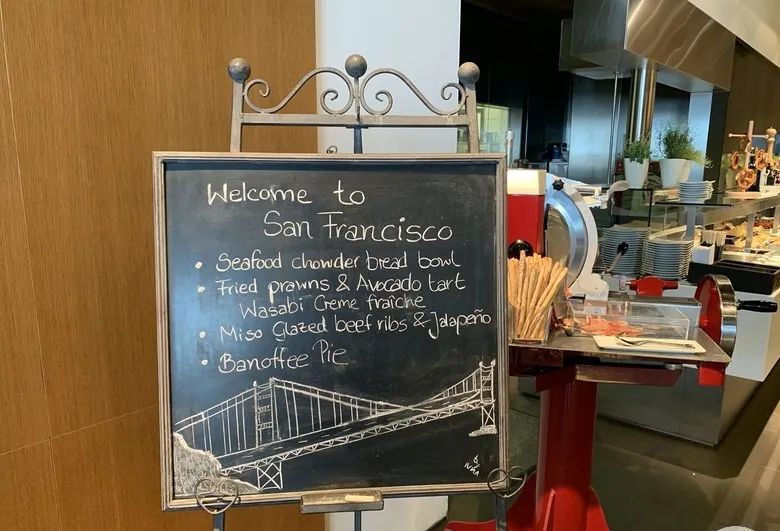 Welcome to
San Francisco
• Seafood chowder bread bowl
• Fried prawns & Avocado tart
Wasabi Creme fraîche
• Miso Glazed beef ribs & Jalapeño
• Banoffee Pie